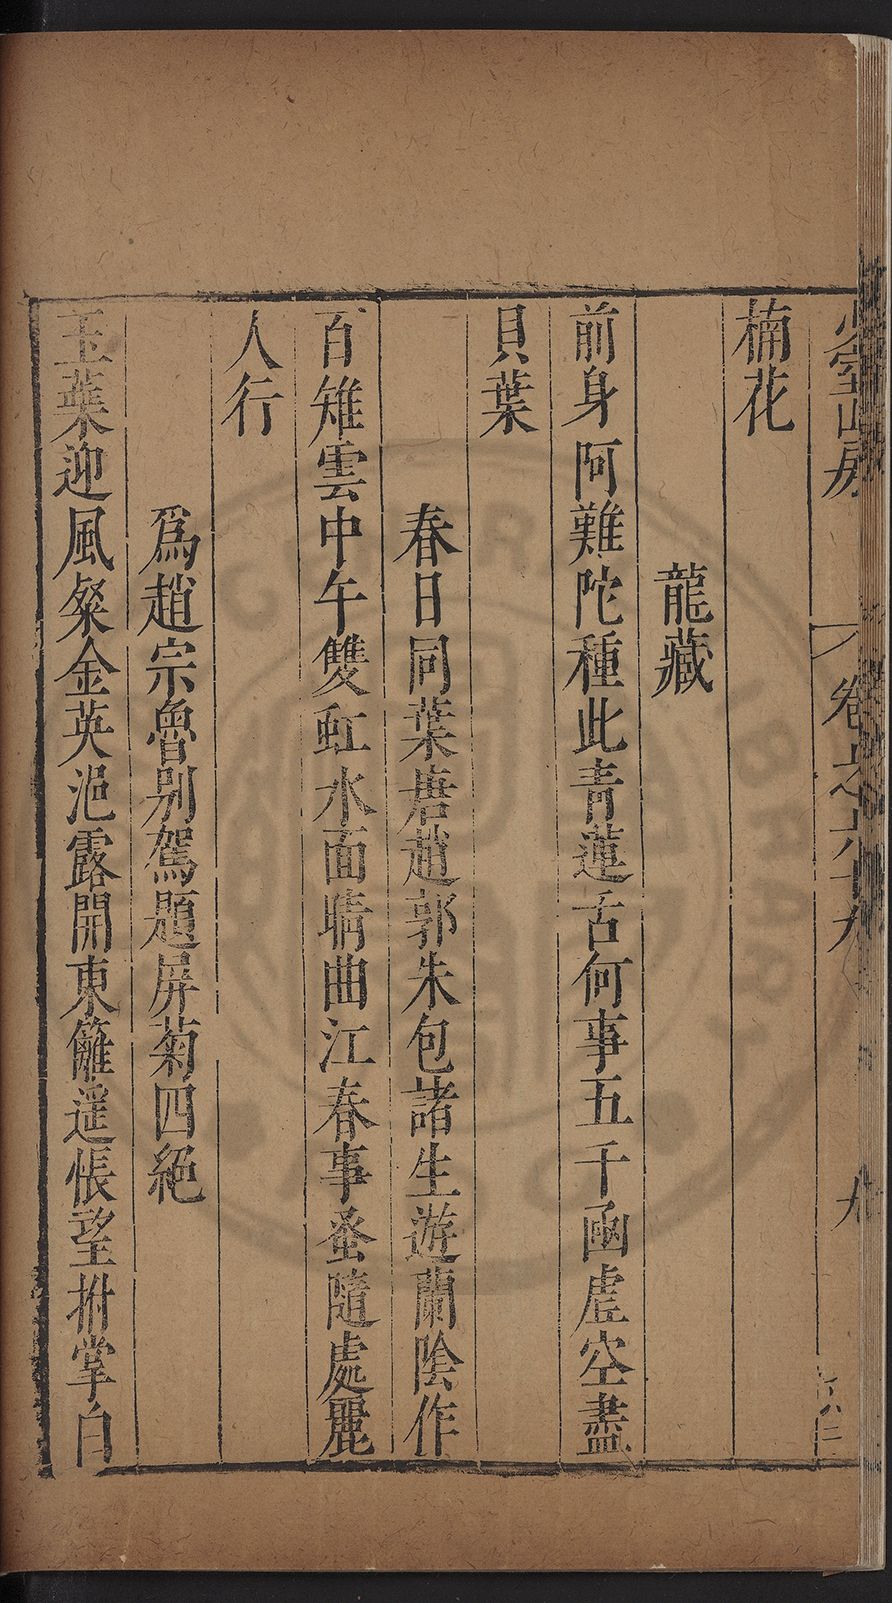 少室山房
卷之六十九
九
楠花
龍藏
前身阿難陀種此青蓮舌何事五千函虛空盡
貝葉
春日同葉唐趙郭朱包諸生遊蘭陰作
百雉雲中午雙虹水面晴曲江春事蚤隨處麗
人行
爲趙宗魯别駕題屏菊四絕
玉葉迎風粲金英浥露開東籬遥悵望拊掌白